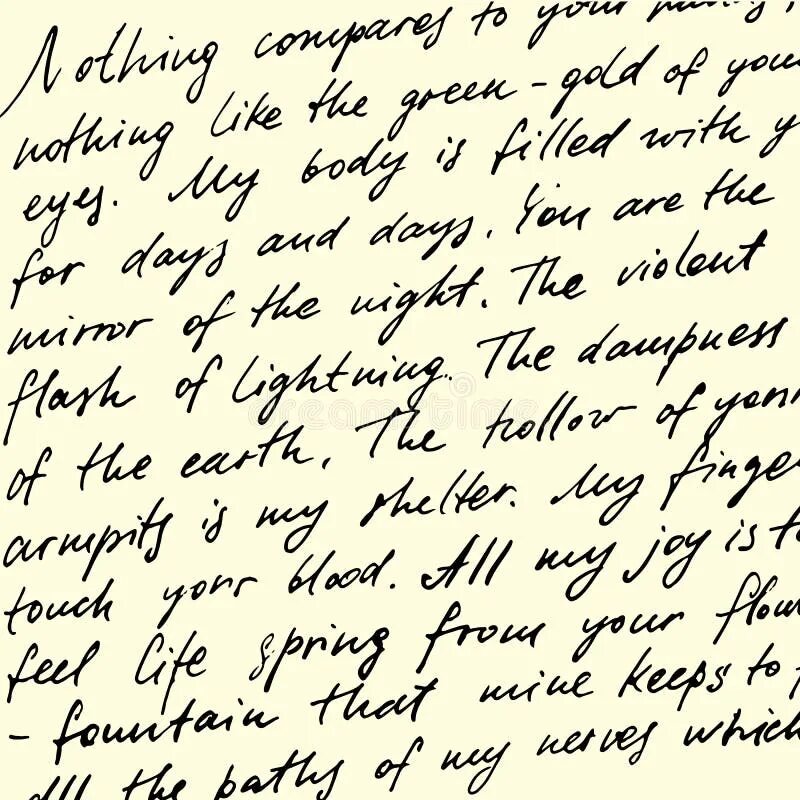 Nothing compares to your
nothing like the green - gold of you
eyes. My body is filled with y
for days and days. You are the
mirror of the night. The violent
flash of lightning. The dampness
of the earth. The hollow of your
armpits is my shelter. My finge
touch your blood. All my joy is to
feel life spring from your flow
- fountain that mine keeps to f
all the paths of my nerves which
dreamstime